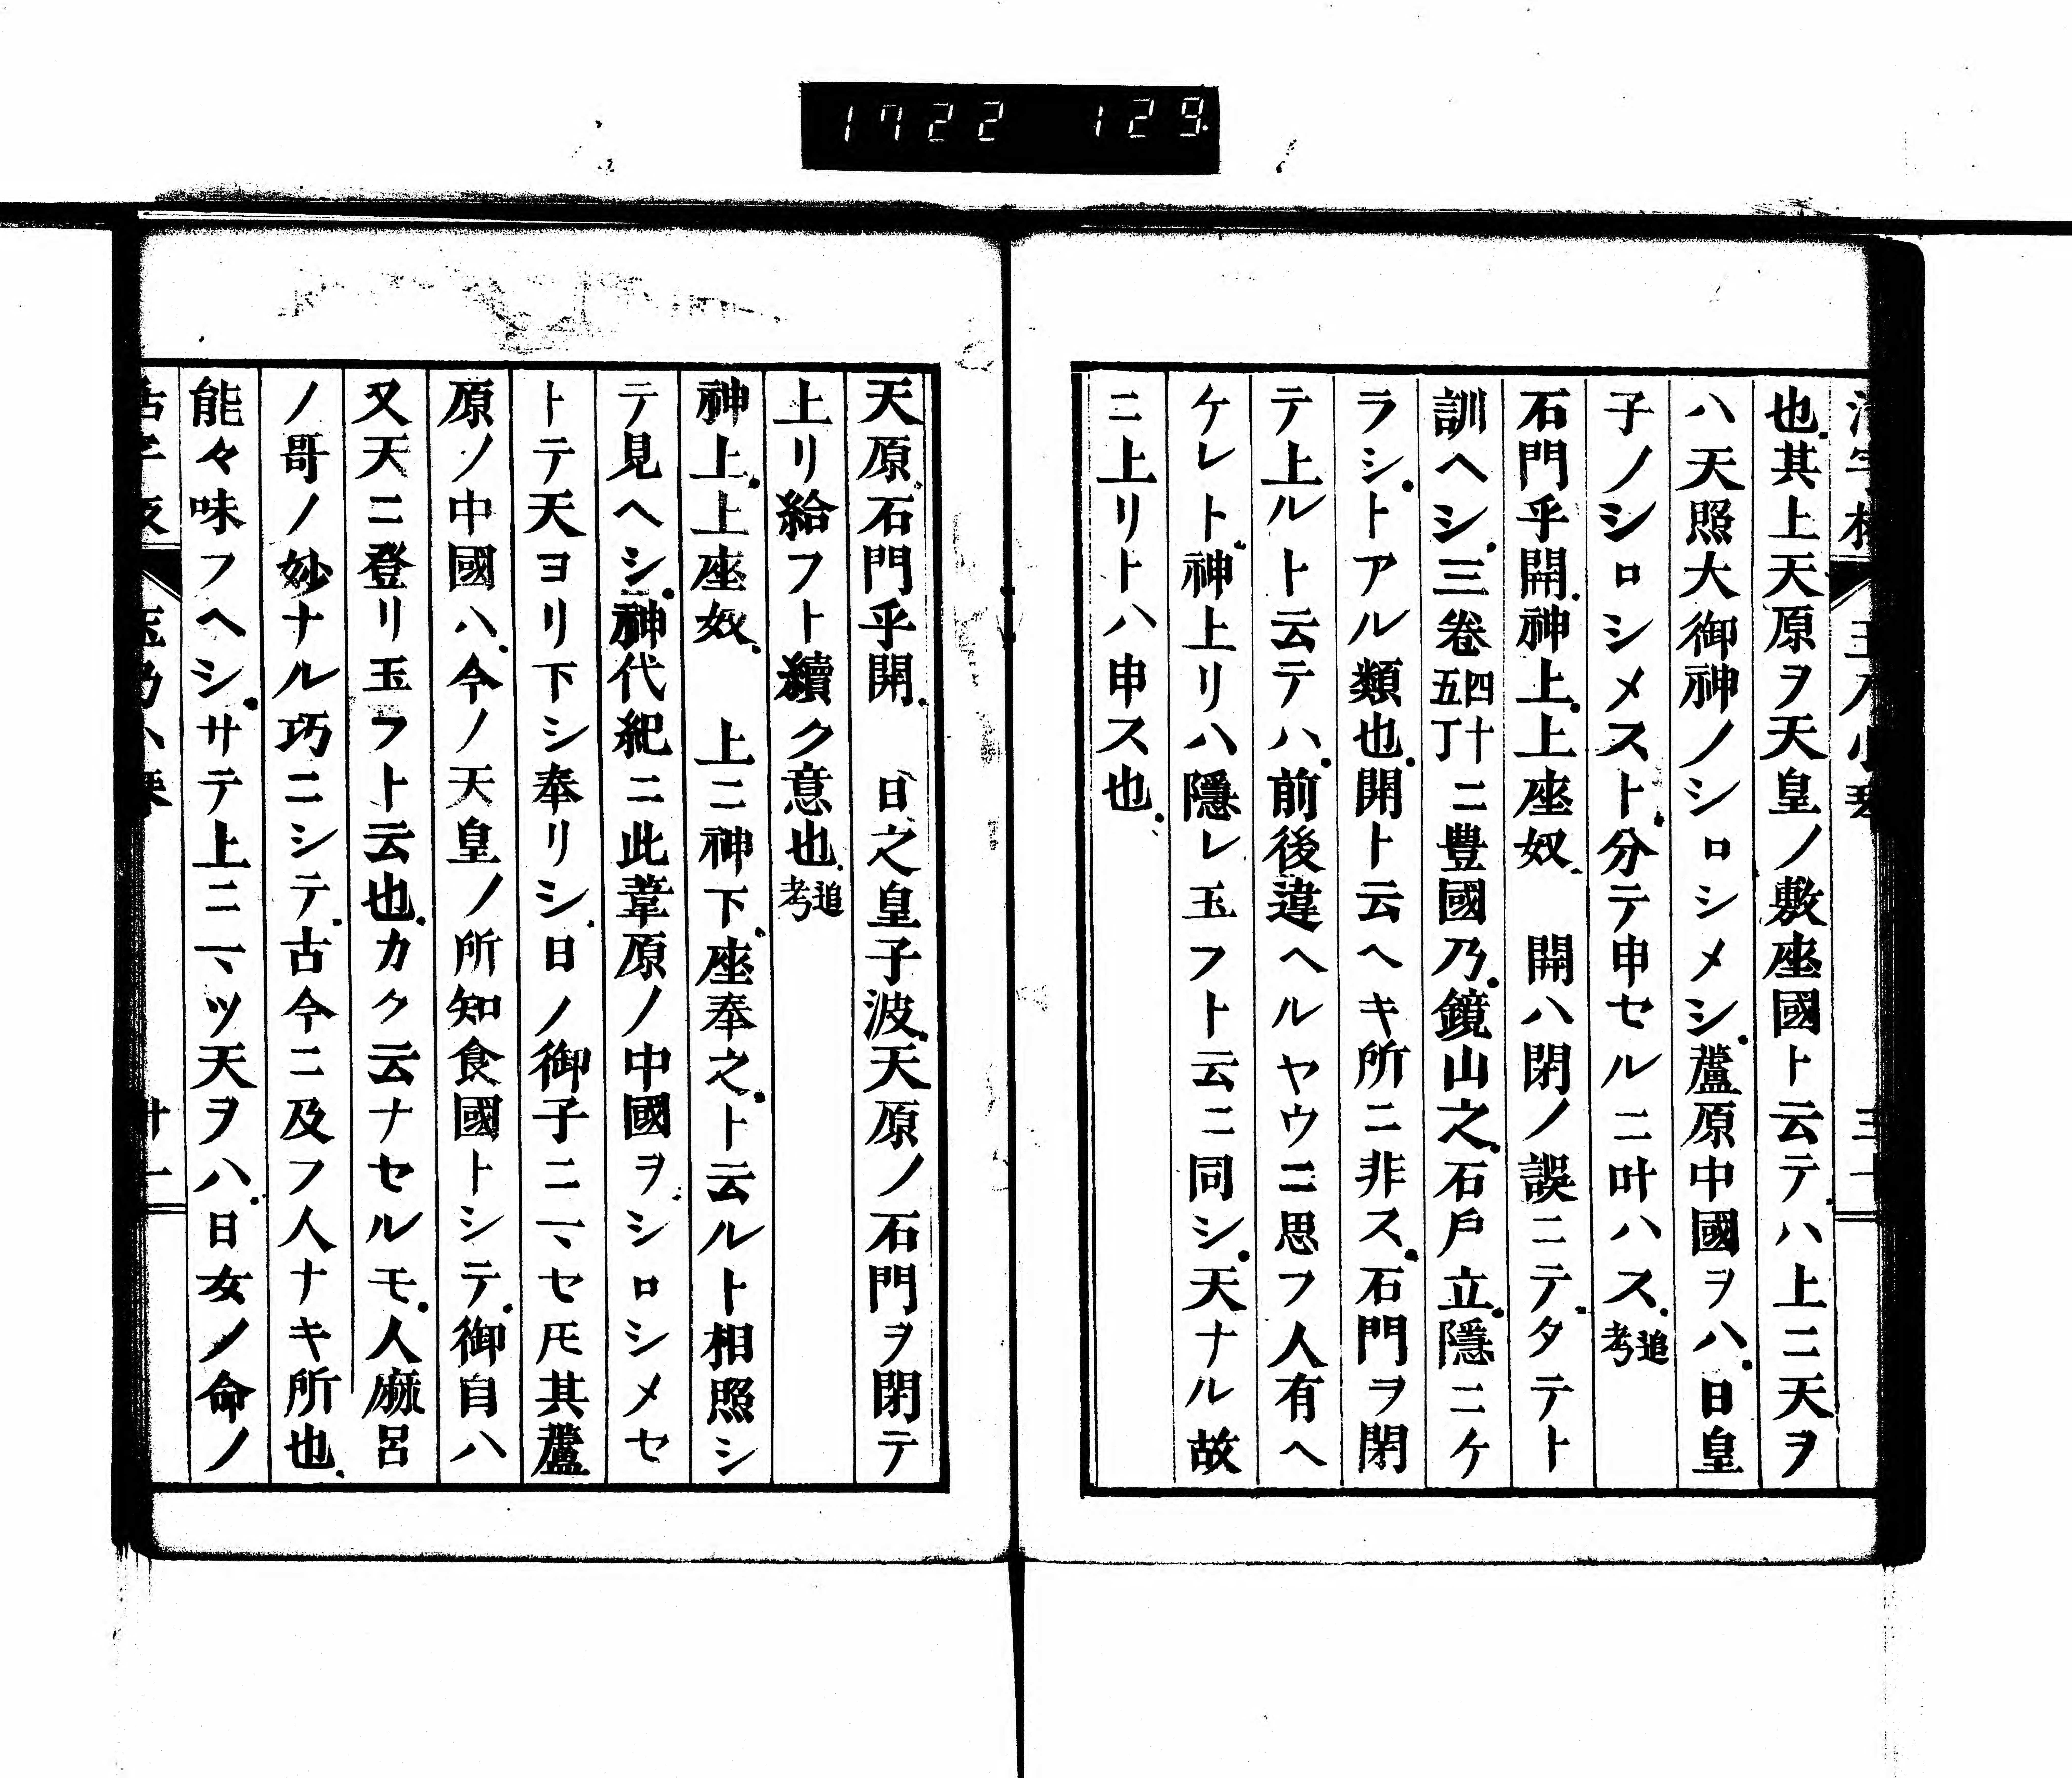 1722 129
也其上天原ヲ天皇ノ敷座國ト云テハ上ニ天ヲ
ハ天照大御神ノシロシメシ蘆原中國ヲハ日皇
子ノシロシメスト分テ申セルニ叶ハス追考
石門乎開神上上座奴　開ハ閉ノ誤ニテタテト
訓ヘシ三巻四十五丁ニ豊國乃鏡山之石戸立隱ニケ
ラシトアル類也開ト云ヘキ所ニ非ス石門ヲ閉
テ上ルト云テハ前後違ヘルヤウニ思フ人有ヘ
ケレト神上リハ隱レ玉フト云ニ同シ天ナル故
ニ上リトハ申ス也
天原石門乎開　日之皇子波天原ノ石門ヲ閉テ
上リ給フト續ク意也追考
神上上座奴　上ニ神下座奉之ト云ルト相照シ
テ見ヘシ神代紀ニ此葦原ノ中國ヲシロシメセ
トテ天ヨリ下シ奉リシ日ノ御子ニヽセ𪜈其蘆
原ノ中國ハ今ノ天皇ノ所知食國トシテ御自ハ
又天ニ登リ玉フト云也カク云ナセルモ人麻呂
ノ哥ノ妙ナル巧ニシテ古今ニ及フ人ナキ所也
能々味フヘシサテ上ニ一ヽツ天ヲハ日女ノ命ノ